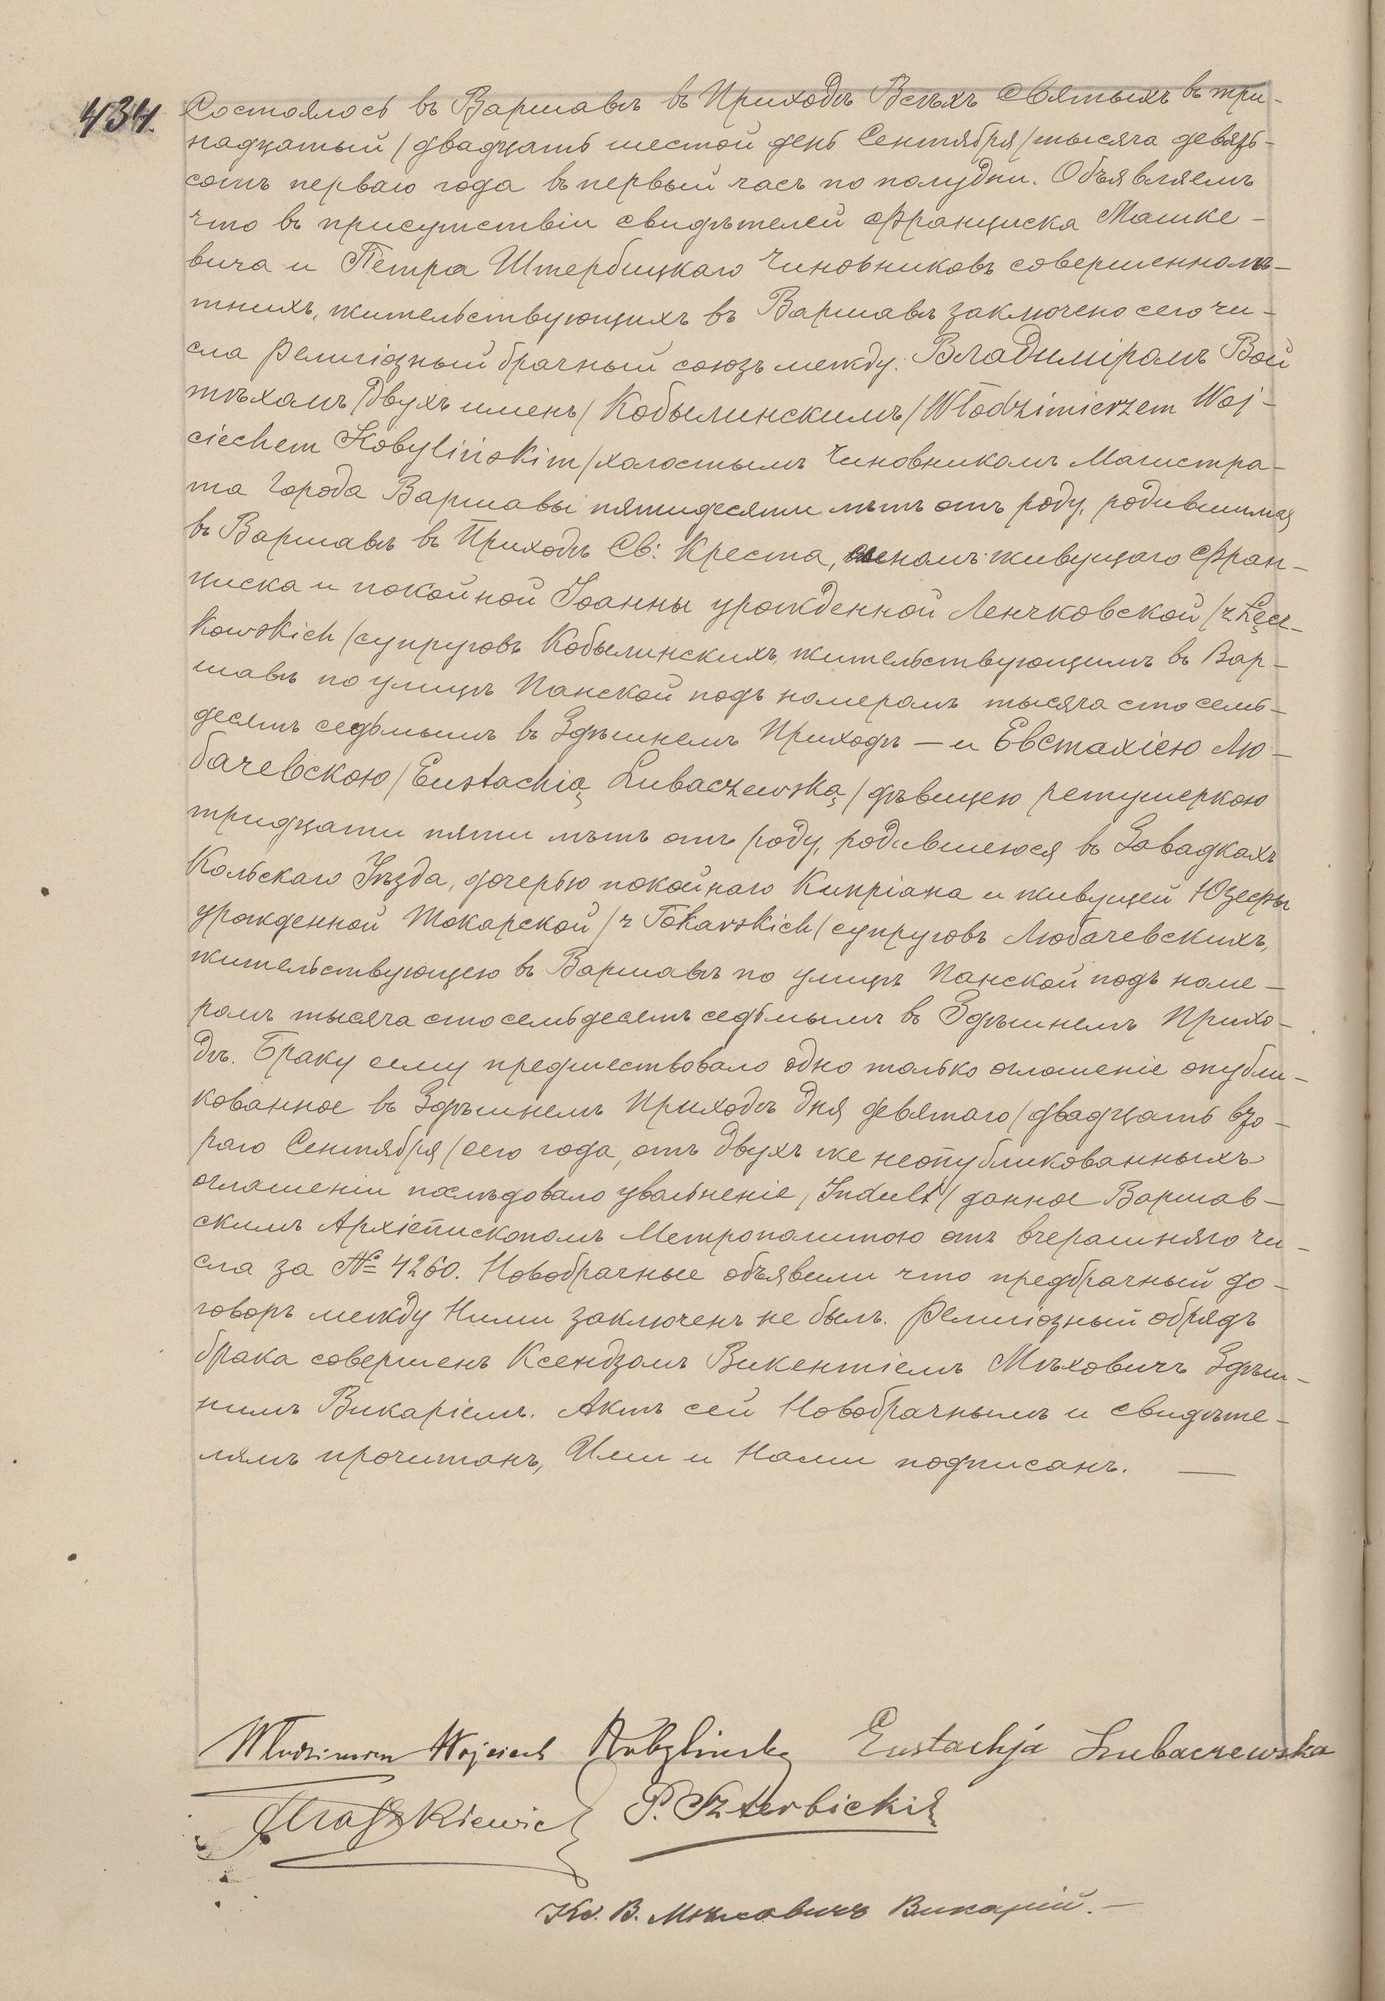 434.
Состоялось въ Варшавѣ въ Приходѣ Всѣхъ Святыхъ въ три-
надцатый /двадцать шестой день Сентября/ тысяча девять-
сотъ перваго года въ первый часъ по полудни. Объявляемъ
что въ присутствіи свидѣтелей Франциска Машке-
вича и Петра Штербицкаго Чиновниковъ совершеннолѣ-
тнихъ, жительствующихъ въ Варшавѣ заключено сего чи-
сла Религіозный брачный союзъ между: Владиміромъ Вой
тѣхомъ /двухъ именъ/ Кобылинскимъ /Włodzimierzem Woj-
ciechem Kobylińskim/ холостымъ Чиновникомъ Магистра-
та Города Варшавы пятидесяти лѣтъ отъ роду, родившимся
въ Варшавѣ въ Приходѣ Св: Креста, сыномъ живущаго Фран-
циска и покойной Іоанны урожденной Ленчковской /z Łęcz-
kowskich/ супруговъ Кобылинскихъ, жительствующимъ въ Вар-
шавѣ по улицѣ Панской подъ номеромъ тысяча сто семь-
десятъ седьмымъ въ Здѣшнемъ Приходѣ — и Евстахіею Лю-
бачевскою /Eustachią Lubaczewską/ дѣвицею ретушеркою
тридцати пяти лѣтъ отъ роду, родившеюся въ Завадкахъ
Кольскаго Уѣзда, дочерью покойнаго Кипріана и живущей Юзефы
урожденной Токарской /z Tokarskich/ супруговъ Любачевскихъ,
жительствующею въ Варшавѣ по улицѣ Панской подъ номе-
ромъ тысяча сто семьдесятъ седьмымъ въ Здѣшнемъ Прихо-
дѣ. Браку сему предшествовало одно только оглашеніе опубли-
кованное въ Здѣшнемъ Приходѣ дня девятаго /двадцать вто-
раго Сентября/ сего года, отъ двухъ же неопубликованныхъ
оглашеній послѣдовало увольненіе /Indult/ данное Варшав-
скимъ Архіепископомъ Метрополитою отъ вчерашняго чи-
сла за № 4260. Новобрачные объявили что предбрачный до-
говоръ между Ними заключенъ не былъ. Религіозный обрядъ
брака совершенъ Ксендзомъ Викентіемъ Мѣховичъ Здѣш-
нимъ Викаріемъ. Актъ сей Новобрачнымъ и свидѣте-
лямъ прочитанъ, Ими и Нами подписанъ. —
Włodzimierz Wojciech Kobyliński Eustachja Lubaczewska
F Maszkiewicz P. Szterbicki
Кс. В. Мѣховичъ Викарій. —